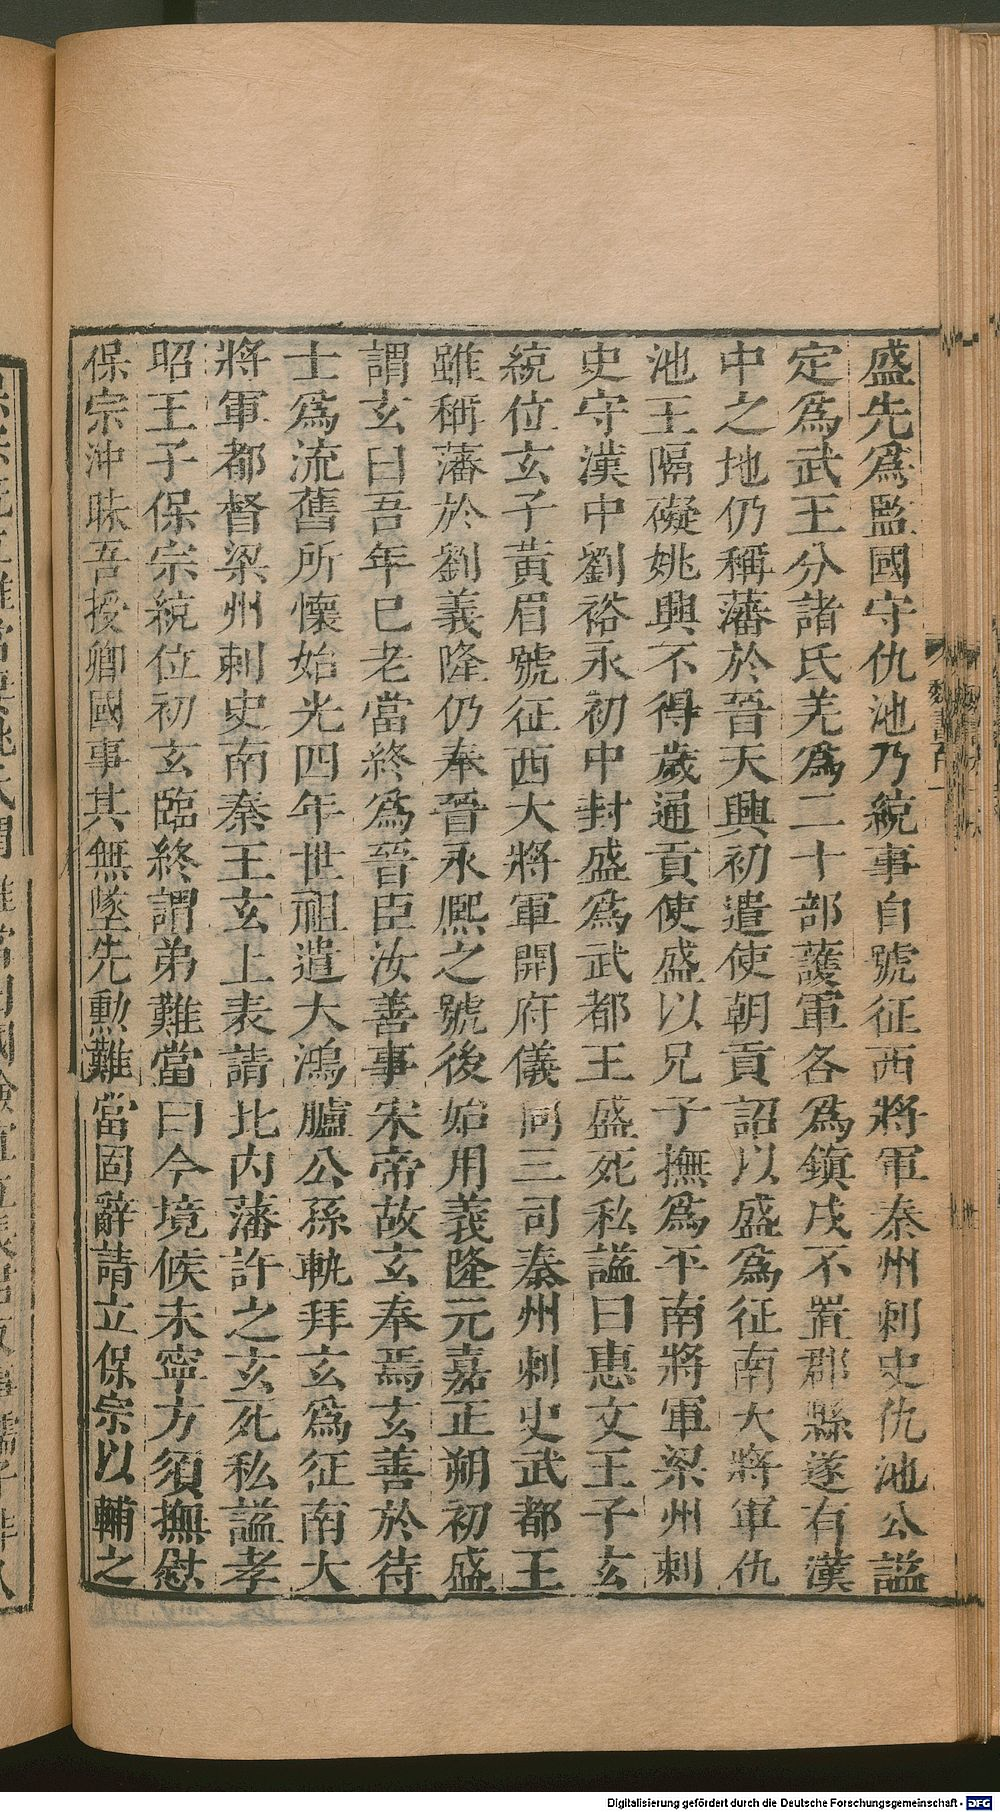 盛先爲監國守仇池乃統事自號征西將軍秦州刺史仇池公謚
定爲武王分諸氐羌爲二十部護軍各爲鎭戍不置郡縣遂有漢
中之地仍稱藩於晉天興初遣使朝貢詔以盛爲征南大將軍仇
池王隔礙姚興不得歲通貢使盛以兄子撫爲平南將軍梁州刺
史守漢中劉裕永初中封盛爲武都王盛死私謚曰惠文王子玄
統位玄子黃眉號征西大將軍開府儀同三司秦州刺史武都王
雖稱藩於劉義隆仍奉晉永熈之號後始用義隆元嘉正朔初盛
謂玄曰吾年已老當終爲晉臣汝善事宋帝故玄奉焉玄善於待
士爲流舊所懷始光四年世祖遣大鴻臚公孫軌拜玄爲征南大
將軍都督梁州刺史南秦王玄上表請比內藩許之玄死私謚孝
昭王子保宗統位初玄臨終謂弟難當曰今境候未寧方須撫慰
保宗沖昧吾授卿國事其無墜先勲難當固辭請立保宗以輔之
魏書百一
Digitalisierung gefördert durch die Deutsche Forschungsgemeinschaft - DFG